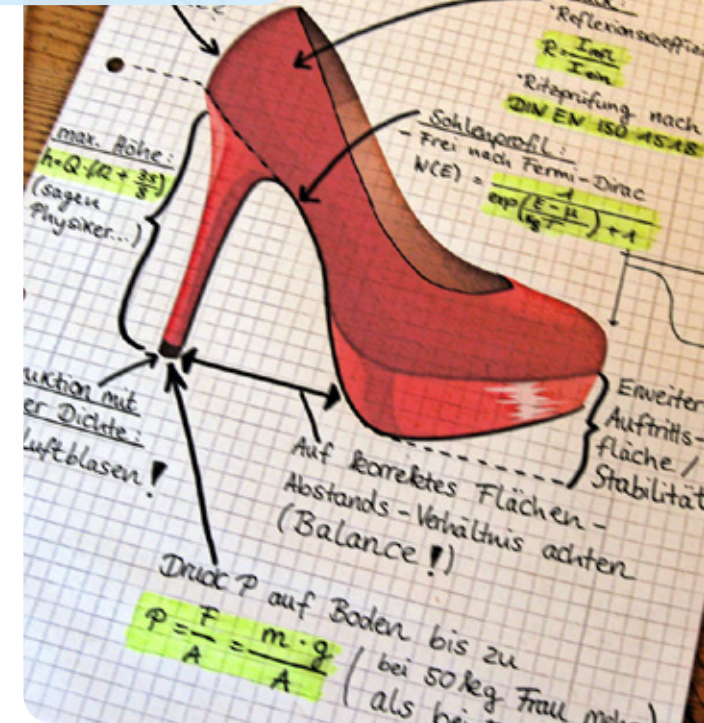 "Reflexionskoeffizi
R = I_refl / I_ein
"Ritzprüfung nach
DIN EN ISO 1518
Sohlenprofil:
- Frei nach Fermi-Dirac
N(E) = 1 / exp((E-μ)/(k_B T)) + 1
max. Höhe:
h = Q · (12 + 3s/8)
(sagen
Physiker...)
uktion mit
er Dichte:
Luftblasen!
Erweiter
Auftritts-
fläche /
Stabilität
Auf korrektes Flächen-
Abstands-Verhältnis achten
(Balance!)
Druck P auf Boden bis zu
P = F/A = m · g / A
( bei 50kg Frau mehr
als bei